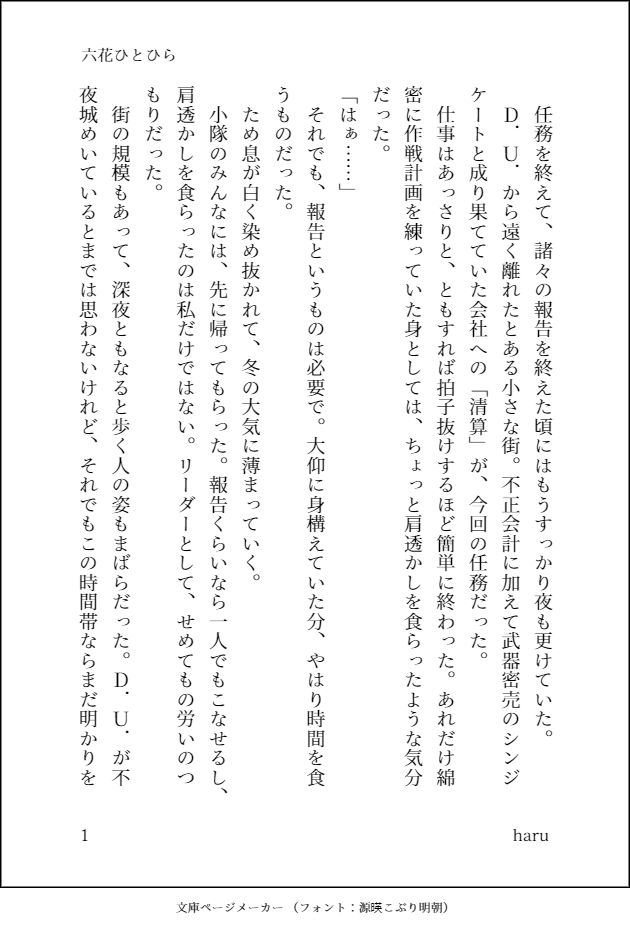 六花ひとひら
　任務を終えて、諸々の報告を終えた頃にはもうすっかり夜も更けていた。
　D．U．から遠く離れたとある小さな街。不正会計に加えて武器密売のシンジ
ケートと成り果てていた会社への「清算」が、今回の任務だった。
　仕事はあっさりと、ともすれば拍子抜けするほど簡単に終わった。あれだけ綿
密に作戦計画を練っていた身としては、ちょっと肩透かしを食らったような気分
だった。
「はぁ……」
　それでも、報告というものは必要で。大仰に身構えていた分、やはり時間を食
うものだった。
　ため息が白く染め抜かれて、冬の大気に薄まっていく。
　小隊のみんなには、先に帰ってもらった。報告くらいなら一人でもこなせるし、
肩透かしを食らったのは私だけではない。リーダーとして、せめてもの労いのつ
もりだった。
　街の規模もあって、深夜ともなると歩く人の姿もまばらだった。D．U．が不
夜城めいているとまでは思わないけれど、それでもこの時間帯ならまだ明かりを
1
haru
文庫ページメーカー（フォント：源暎こぶり明朝）